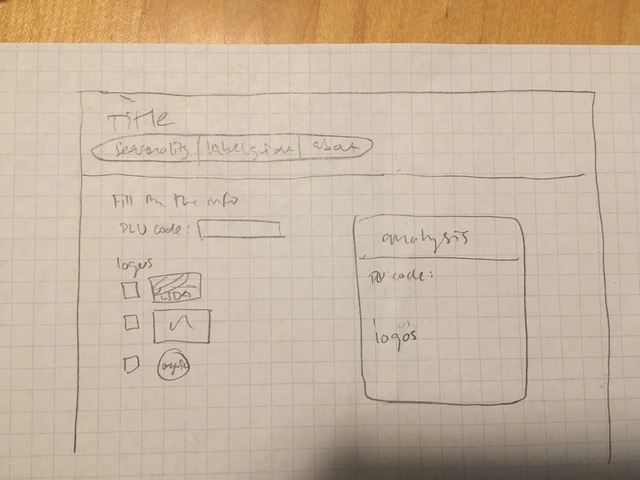 Title
seasonality label guide about
Fill in the info
PLU code:
logos
USDA
organic
analysis
PLU code:
logos